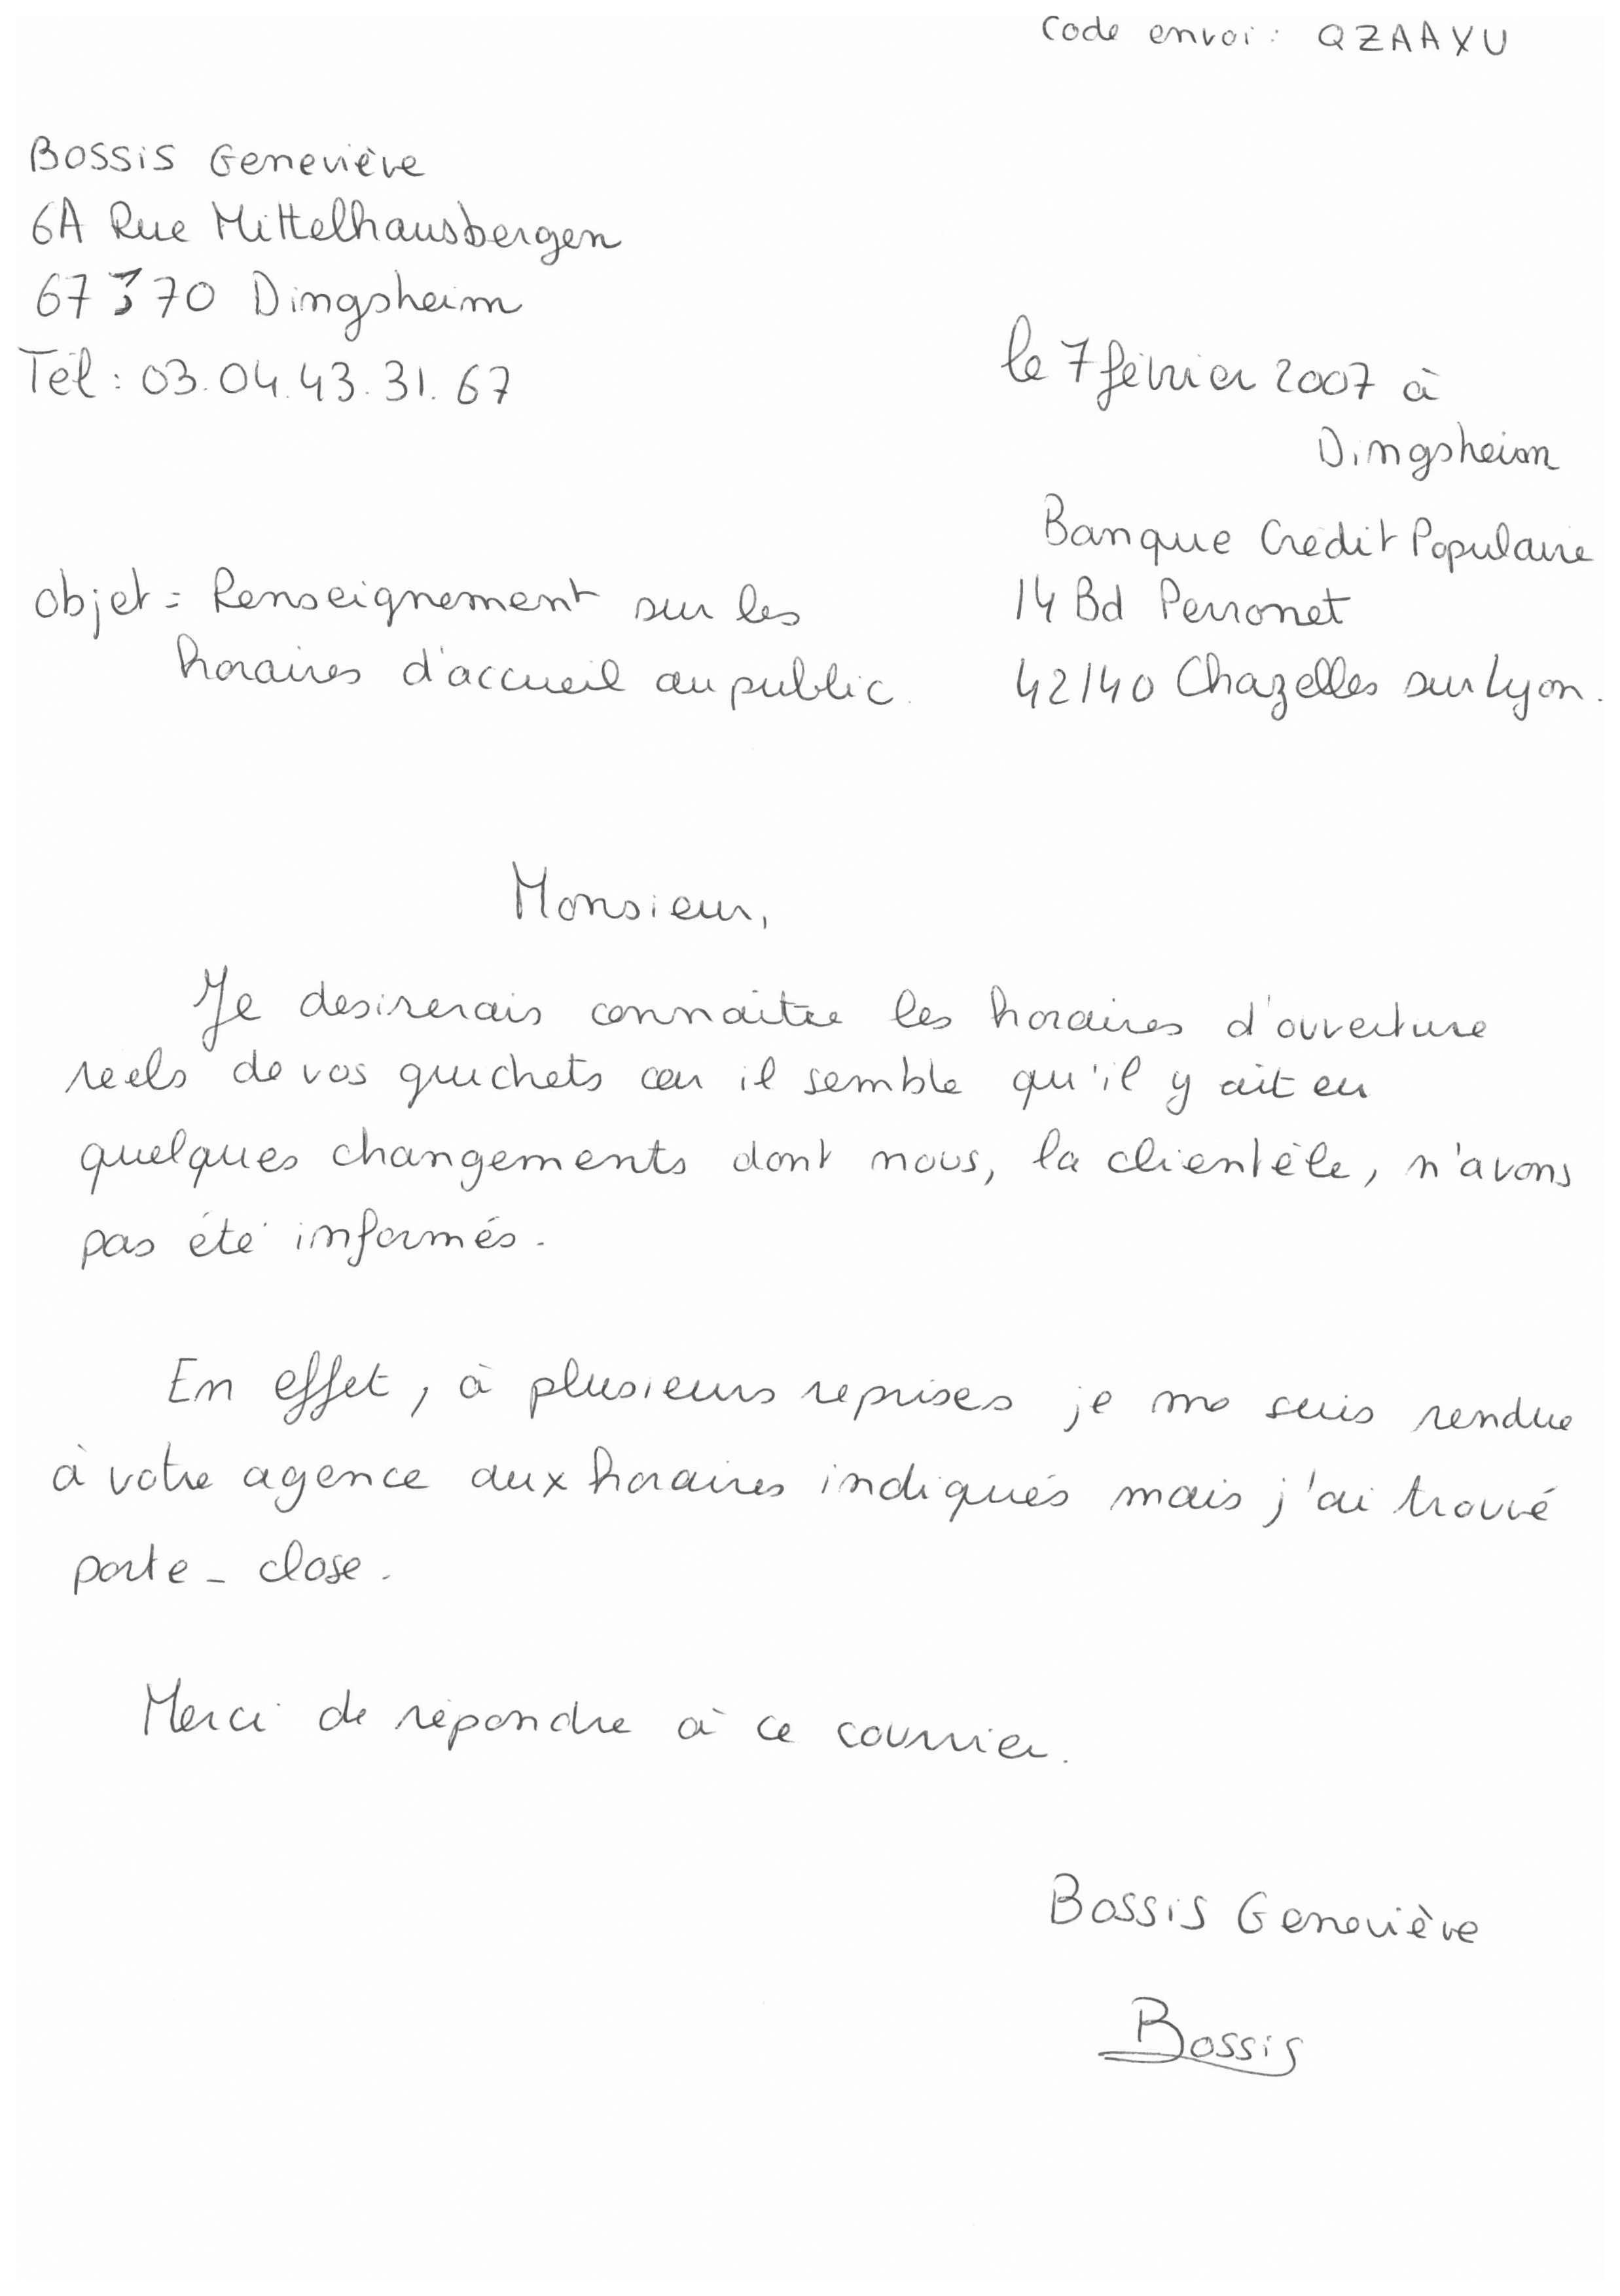 Code envoi : QZAAXU
Bossis Geneviève
6A Rue Mittelhausbergen
67370 Dingsheim
Tél : 03.04.43.31.67
le 7 février 2007 à
Dingsheim
Banque Crédit Populaire
14 Bd Perronet
42140 Chazelles sur Lyon.
Objet = Renseignement sur les
horaires d'accueil au public.
Monsieur,
Je desirerais connaitre les horaires d'ouverture
reels de vos guichets car il semble qu'il y ait eu
quelques changements dont nous, la clientèle, n'avons
pas été informés.
En effet, à plusieurs reprises je me suis rendue
à votre agence aux horaires indiqués mais j'ai trouvé
porte-close.
Merci de répondre à ce courrier.
Bossis Geneviève
Bossis